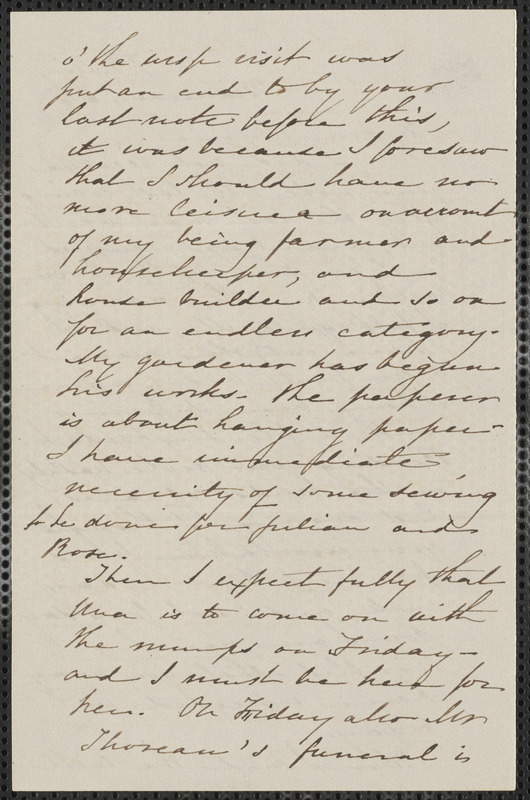 the visit was
put an end to by your
last note before this,
it was because I foresaw
that I should have no
more leisure on account
of my being farmer and
housekeeper, and
house builder and so on
for an endless category.
My gardener has begun
his works. The paperer
is about hanging paper.
I have immediate
necessity of some sewing
to be done for Julian and
Rose.
Then I expect fully that
Una is to come on with
the mumps on Friday —
and I must be here for
her. On Friday also Mr
Thoreau's funeral is